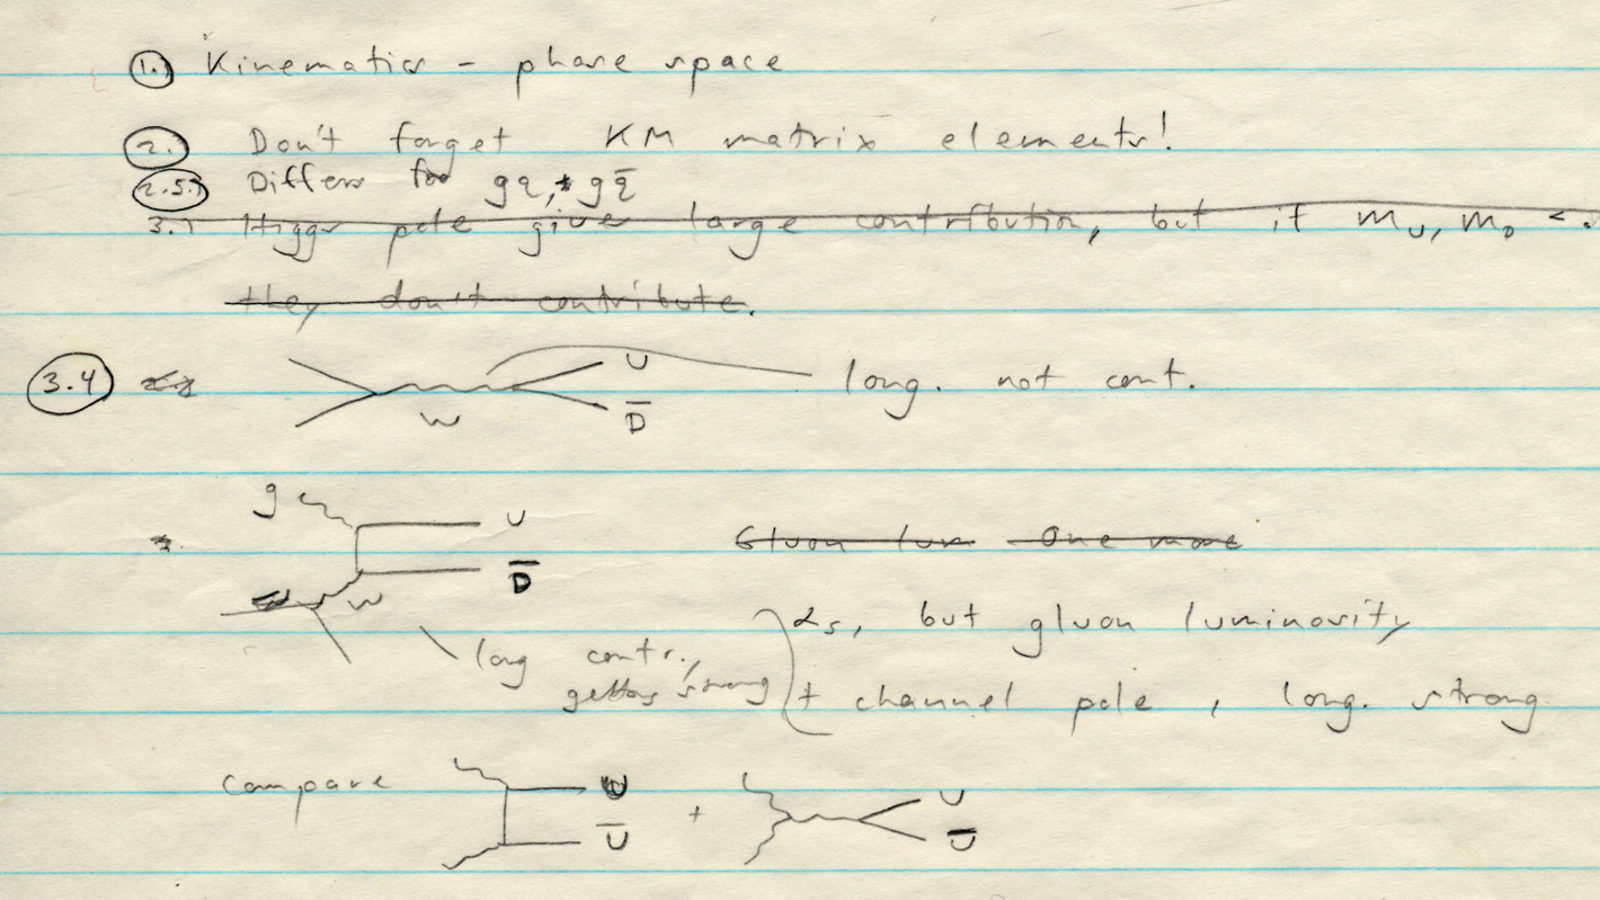 1. Kinematics - phase space
2. Don't forget KM matrix elements!
2.5.) Differs for gq, gq̄
3.) Higgs pole gives large contribution, but if m_U, m_D <
they don't contribute.
3.4
U
long. not cont.
W
D̄
g
U
D̄
Gluon lum One more
W
αs, but gluon luminosity
long contr.,
getting strong
t channel pole, long. strong
compare
U
Ū
+
U
Ū